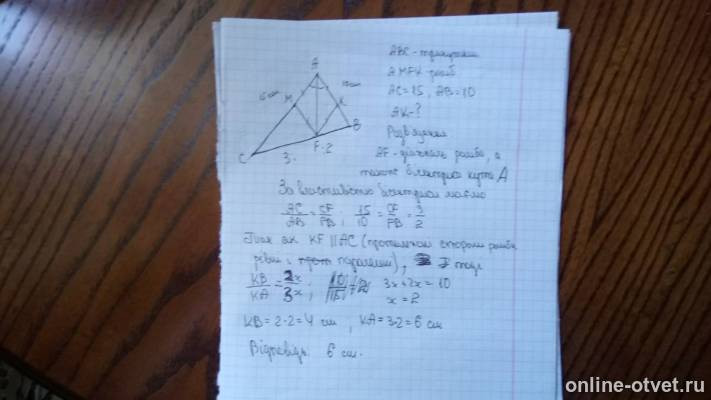 ABC - трикутник
AMFK - ромб
AC = 15, AB = 10
AK - ?
Розв'язання
AF - діагональ ромба, а
також бісектриса кута A
За властивістю бісектриси маємо
AC/AB = CF/FB; 15/10 = CF/FB = 3/2
Так як KF || AC (протилежні сторони ромба
рівні і паралельні), тоді
KB/KA = 2x/3x; 3x + 2x = 10
x = 2
KB = 2·2 = 4 см, KA = 3·2 = 6 см
Відповідь: 6 см.
A
15 см
10 см
M
K
B
C
F
3
2
online-otvet.ru